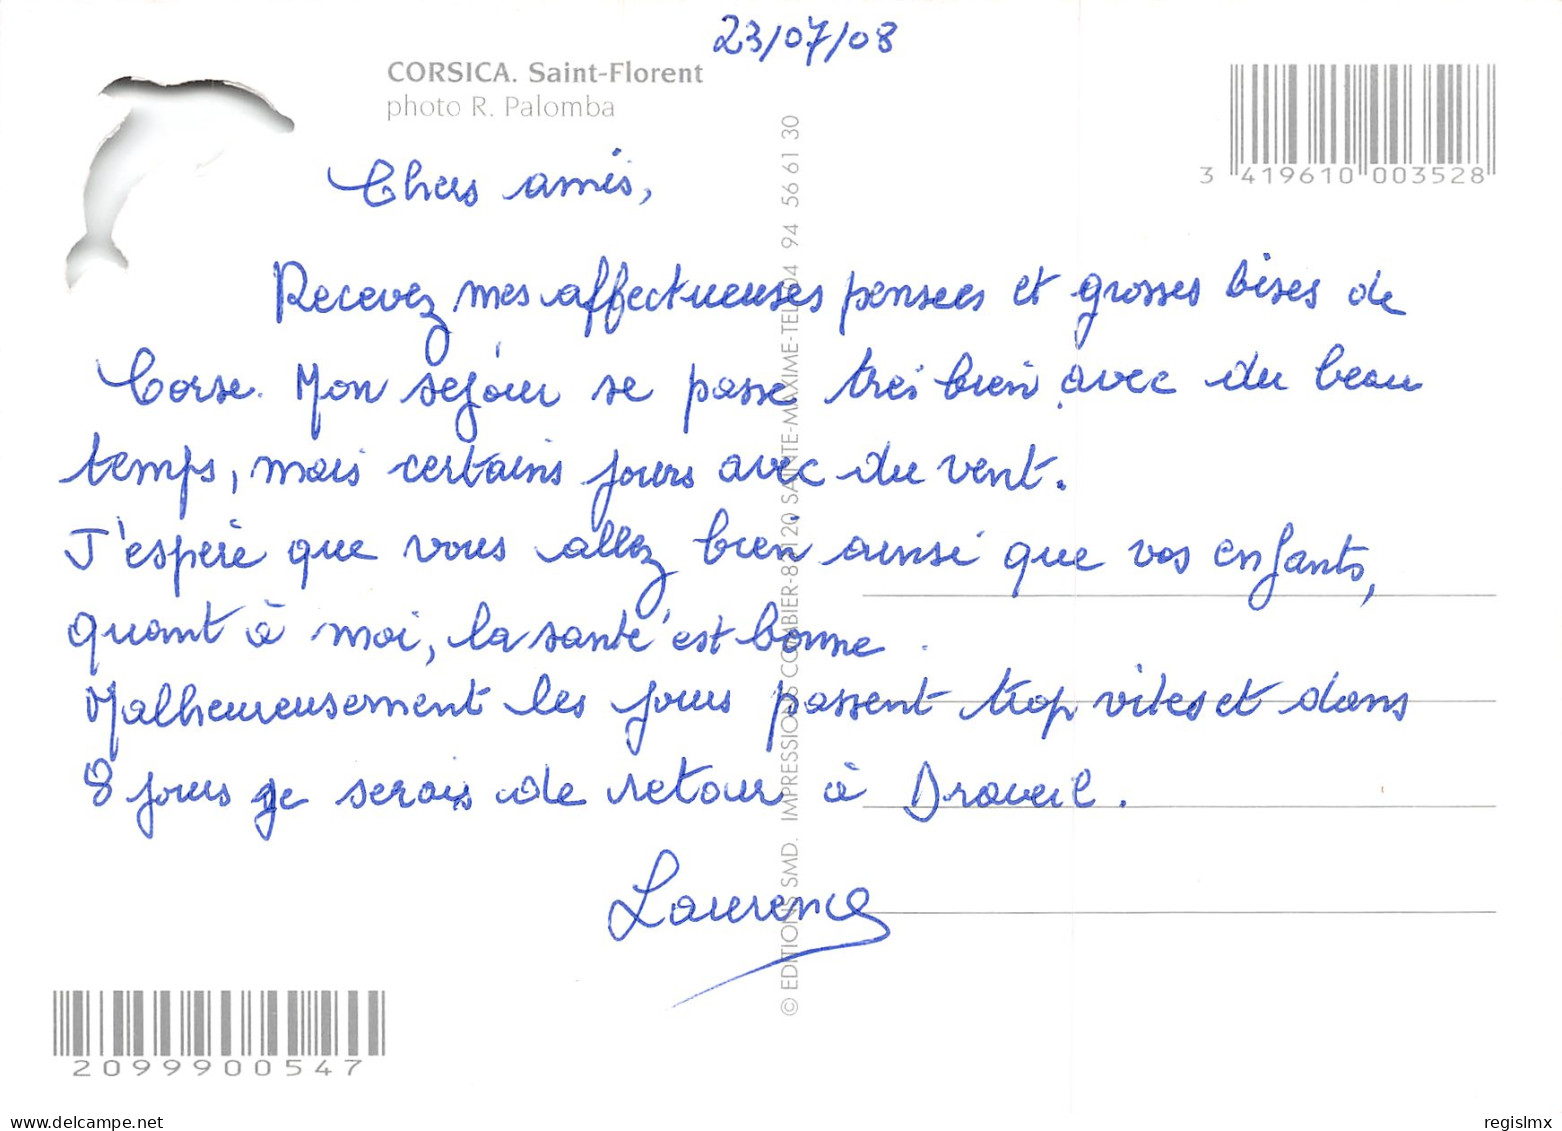 23/07/08
CORSICA. Saint-Florent
photo R. Palomba
3 419610 003528
Chers amis,
Recevez mes affectueuses pensees et grosses bises de
Corse. Mon sejour se passe très bien avec du beau
temps, mais certains jours avec du vent.
J'espère que vous allez bien ainsi que vos enfants,
quant à moi, la santé est bonne.
Malheureusement les jours passent trop vites et dans
8 jours je serais de retour à Draveil.
Laurence
© EDITIONS SMD. IMPRESSIONS COMBIER-83120 SAINTE-MAXIME-TEL. 04 94 56 61 30
2099900547
delcampe.net
regislmx